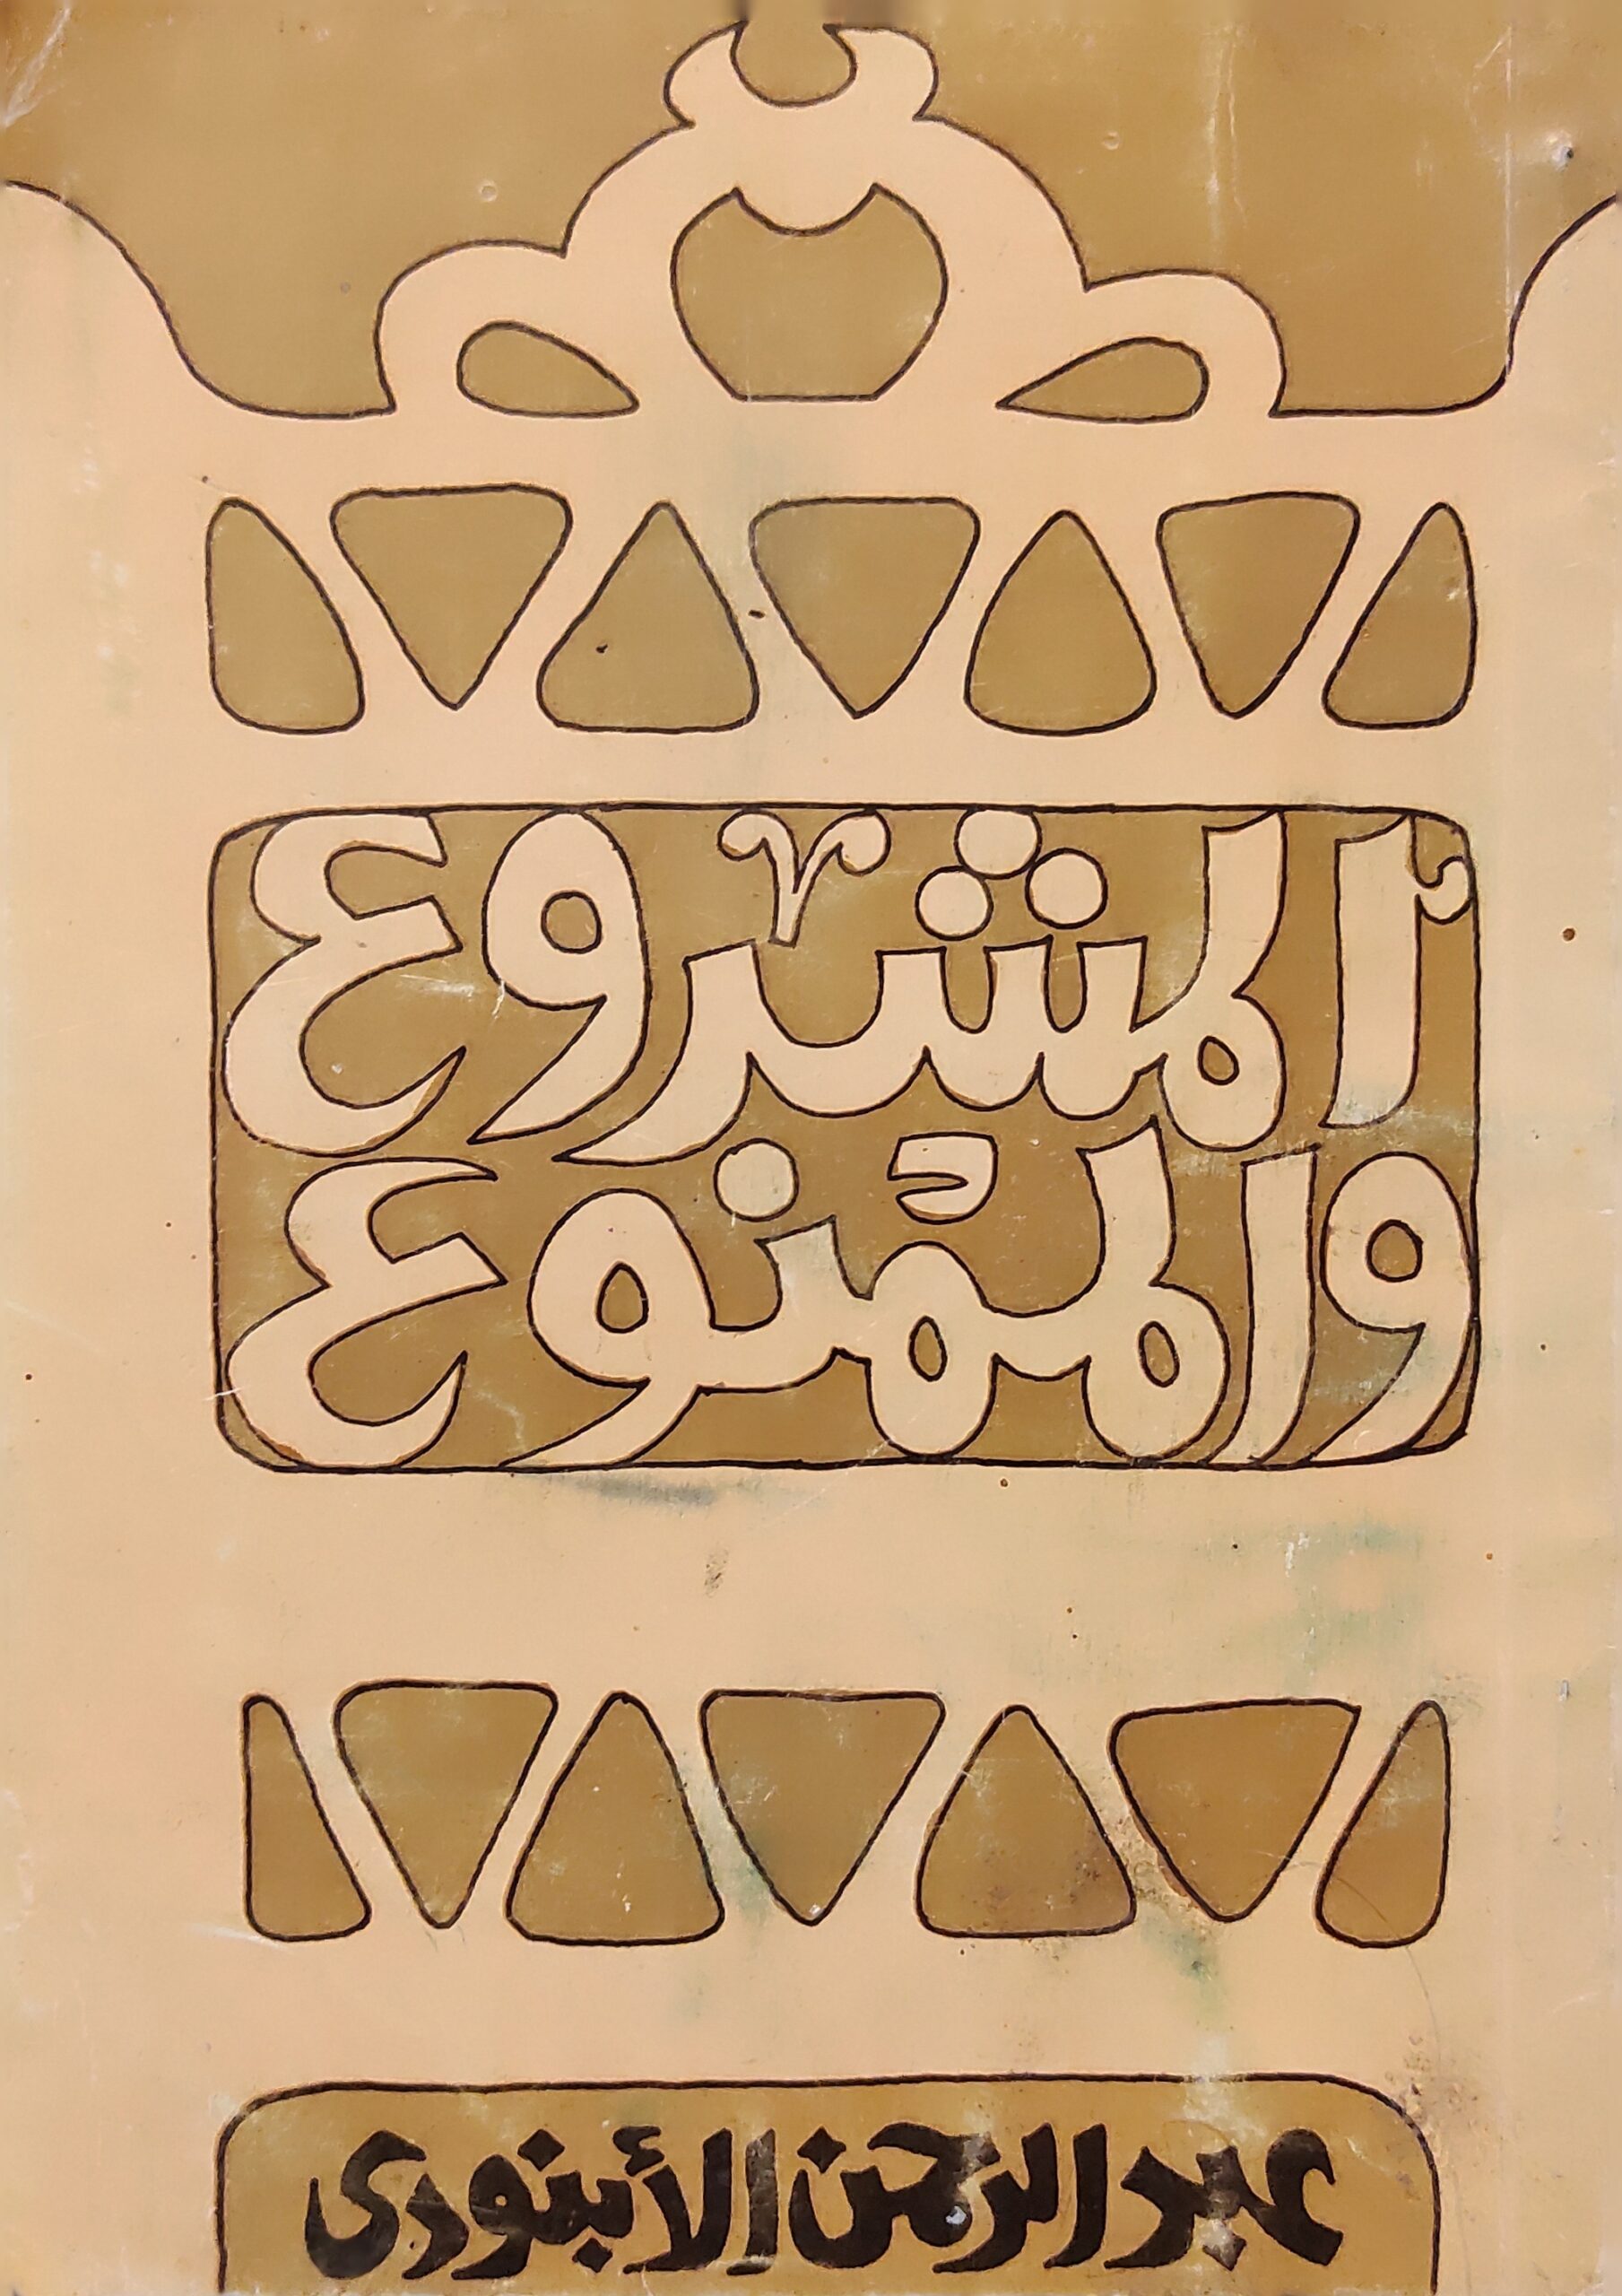 المشروع
والممنوع
عبد الرحمن الأبنودى